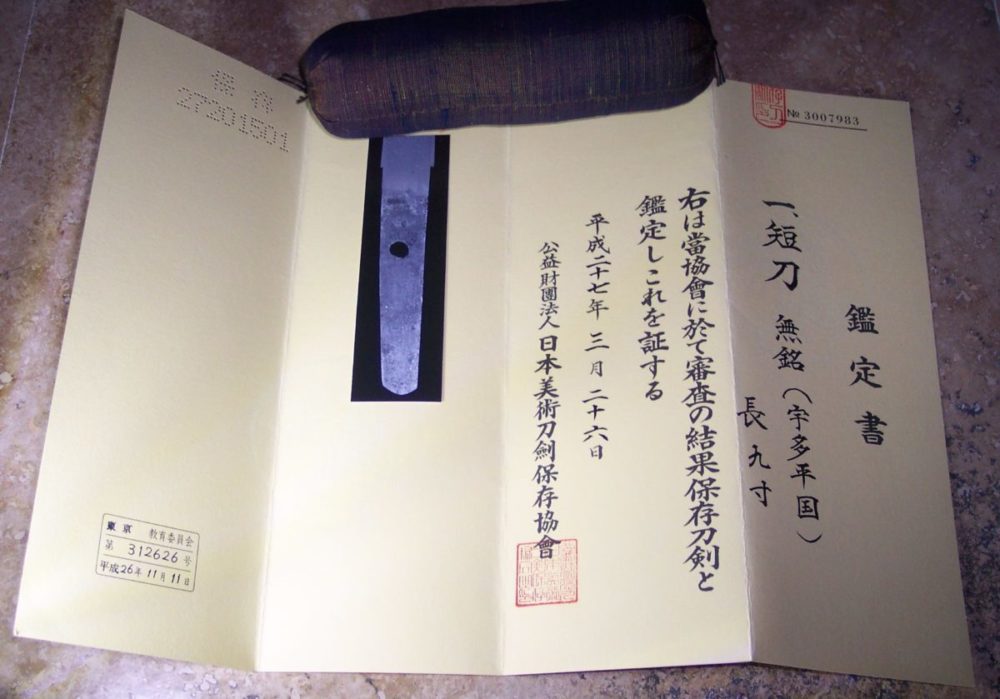 № 3007983
鑑定書
一、短刀 無銘(宇多平国)
長九寸
右は當協會に於て審査の結果保存刀剣と
鑑定しこれを証する
平成二十七年 三月 二十六日
公益財團法人 日本美術刀劍保存協會
保存
27201501
東京 教育委員会
第 312626 号
平成26年11月11日